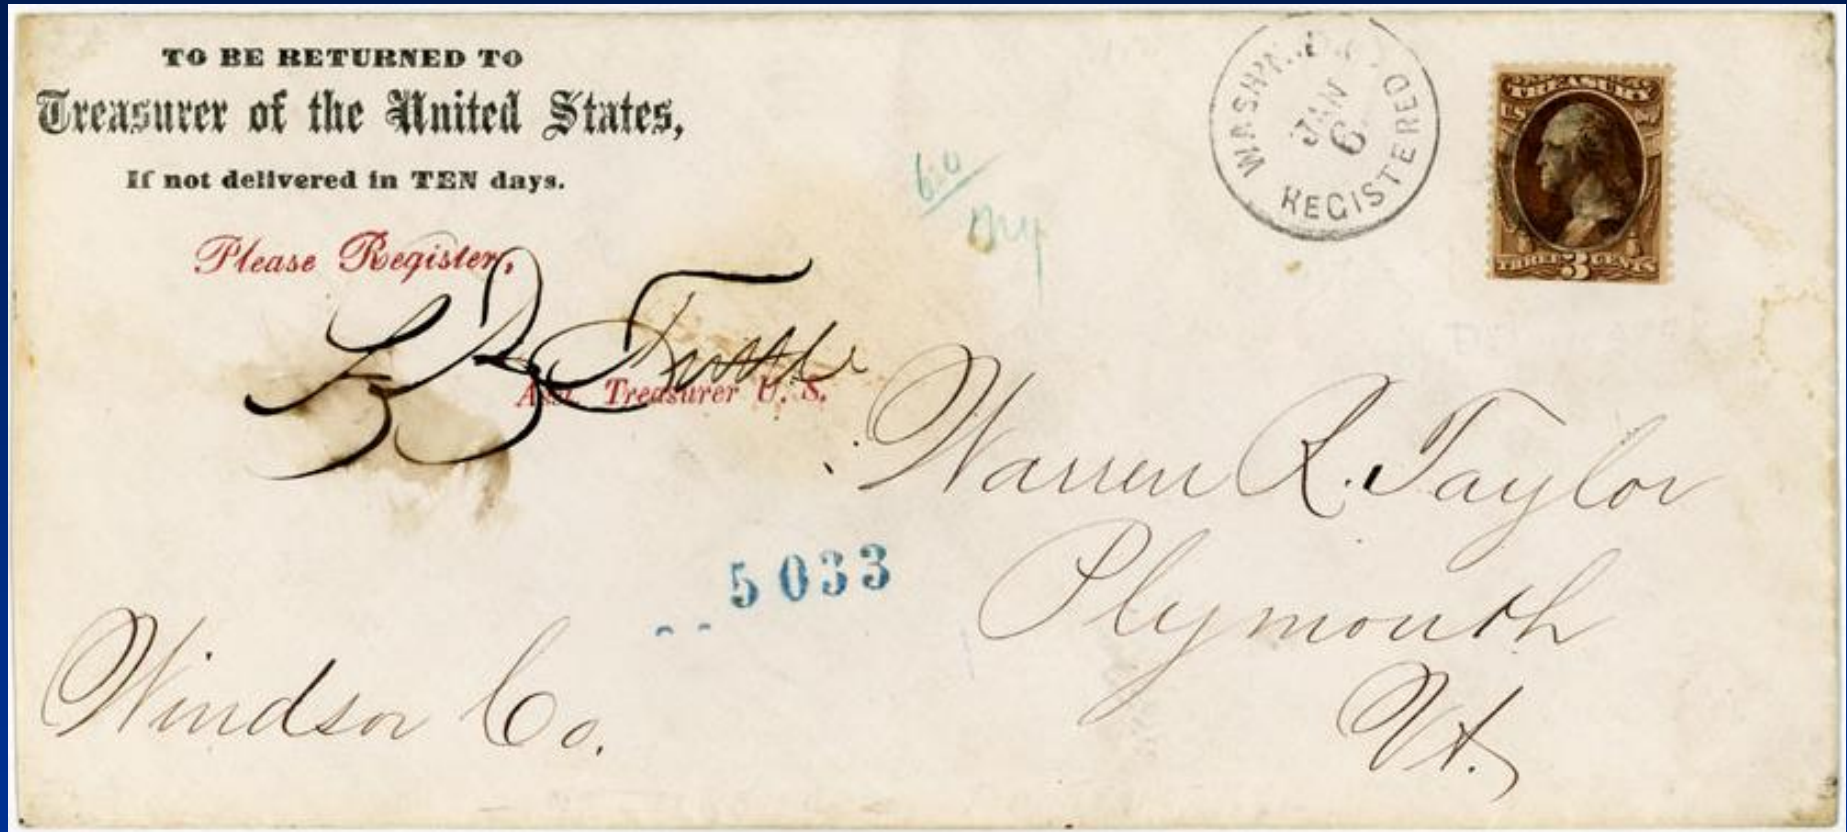 TO BE RETURNED TO
Treasurer of the United States,
If not delivered in TEN days.
Please Register,
Asst. Treasurer U. S.
REGISTERED
JAN
6
TREASURY
U S
THREE 3 CENTS
Warren R. Taylor
Plymouth
Vt.
5033
Windsor Co.